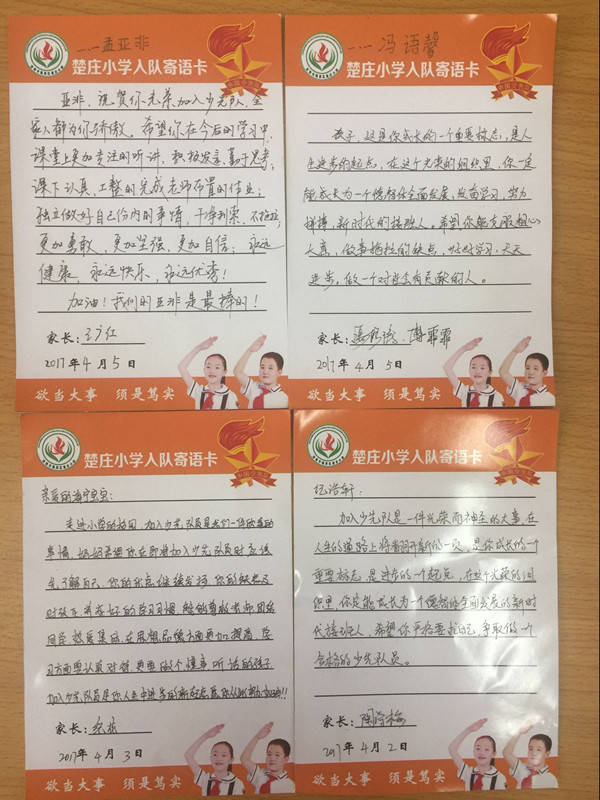 一.一孟亚非
楚庄小学入队寄语卡
亚非，祝贺你光荣加入少先队，全
家人都为你骄傲。希望你在今后的学习中，
课堂上更加专注的听讲，积极发言，勤于思考；
课下认真、工整的完成老师布置的作业；
独立做好自己份内的事情，干净利索、不拖拉；
更加勇敢、更加坚强、更加自信；永远
健康、永远快乐、永远优秀！
加油！我们的亚非是最棒的！
家长：王广红
2017年 4 月 5 日
欲当大事 须是笃实
一.一冯语馨
楚庄小学入队寄语卡
中国少先队
孩子，这是你成长的一个重要标志，是人
生进步的起点，在这个光荣的组织里，你一定
能成长为一个德智体全面发展，热爱学习，努力
拼搏，新时代的接班人。希望你能克服粗心
大意，做事拖拉的缺点，好好学习，天天
进步，做一个对社会有贡献的人。
家长： 傅霏霏
2017年 4 月 5 日
欲当大事 须是笃实
楚庄小学入队寄语卡
中国少先队
亲爱的 宝宝：
走进小学的校园，加入少先队员是我们一件欣喜的
事情，妈妈希望你在即将加入少先队员时应该
先了解自己，你的乐点继续发扬，你的缺点及
时改正，养成好的学习习惯，能够尊敬老师，团结
同学，热爱集体，在思想品德方面更加提高，学
习方面要认真对待，更要做个懂事听话的孩子，
加入少先队员是你人生中进步的新起点
家长：
2017年 4 月 3 日
欲当大事 须是笃实
楚庄小学入队寄语卡
中国少先队
纪浩轩：
加入少先队是一件光荣而神圣的大事，在
人生的道路上将翻开新的一页，是你成长的一个
重要标志，是进步的一个起点，在这个光荣的组
织里，你定能成长为一个德智体全面发展的新时
代接班人，希望你严格要求自己，争取做一个
合格的少先队员。
家长：陶学梅
2017年 4 月 2 日
欲当大事 须是笃实